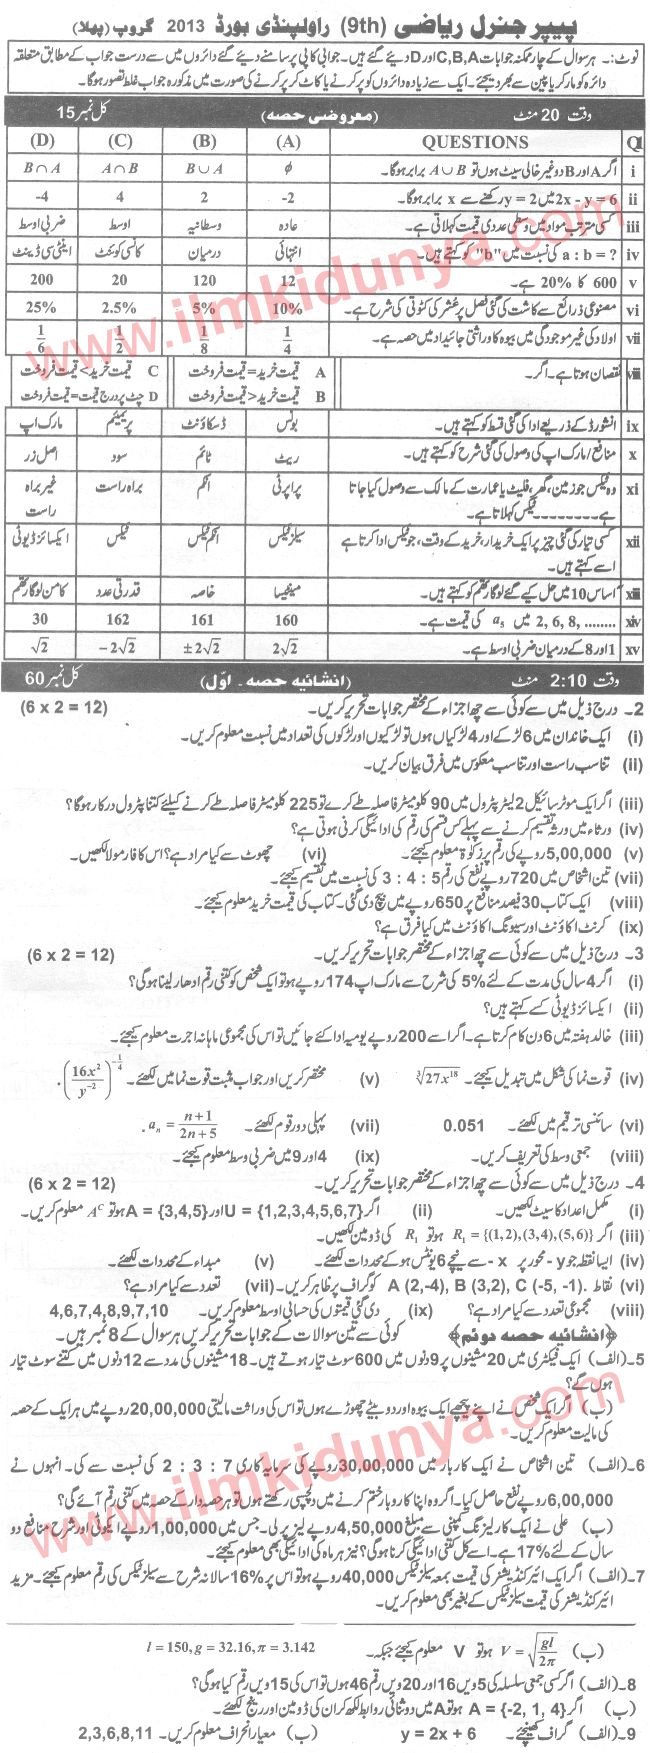 پیپر جنرل ریاضی (9th) راولپنڈی بورڈ 2013 گروپ (پہلا)
نوٹ:۔ ہر سوال کے چار ممکنہ جوابات C,B,A اور D دیے گئے ہیں۔ جوابی کاپی پر سامنے دیے گئے دائروں میں سے درست جواب کے مطابق متعلقہ
دائرہ کو مارکر یا پین سے بھر دیجئے۔ ایک سے زیادہ دائروں کو پُر کرنے یا کاٹ کر پُر کرنے کی صورت میں مذکورہ جواب غلط تصور ہوگا۔
وقت 20 منٹ (معروضی حصہ) کل نمبر 15
Q1 QUESTIONS (A) (B) (C) (D)
i اگر A اور B دو غیر خالی سیٹ ہوں تو A∪B برابر ہوگا۔ ϕ B∪A A∩B B∩A
ii 2x - y = 6 میں y = 2 رکھنے سے x برابر ہوگا۔ -2 2 4 -4
iii کسی مرتب مواد میں وسطی عددی قیمت کہلاتی ہے۔ عادہ وسطانیہ اوسط ضربی اوسط
iv a : b = ? کی نسبت میں "b" کو کہتے ہیں۔ انتہائی درمیان کانسی کوئنٹ اینٹی سی ڈینٹ
v 600 کا 20% ہے۔ 12 120 20 200
vi مصنوعی ذرائع سے کاشت کی گئی فصل پر عشر کی کٹوتی کی شرح ہے۔ 10% 5% 2.5% 25%
vii اولاد کی غیر موجودگی میں بیوہ کا وراثتی جائیداد میں حصہ ہے۔ 1/4 1/8 1/2 1/6
viii نقصان ہوتا ہے۔ اگر۔ A قیمت خرید = قیمت فروخت C قیمت خرید > قیمت فروخت
B قیمت خرید < قیمت فروخت D چٹ پر درج قیمت = قیمت فروخت
ix انشورڈ کے ذریعے ادا کی گئی قسط کو کہتے ہیں۔ بونس ڈسکاؤنٹ پریمیئم مارک اپ
x منافع / مارک اپ کی وصول کی گئی شرح کو کہتے ہیں۔ ریٹ ٹائم سود اصل زر
xi وہ ٹیکس جو زمین، گھر، فلیٹ یا عمارت کے مالک سے وصول کیا جاتا پراپرٹی انکم براہ راست غیر براہ
ہے۔۔۔۔۔۔۔۔۔ ٹیکس کہلاتا ہے۔ راست
xii کسی تیار کی گئی چیز پر ایک خریدار، خرید کے وقت، جو ٹیکس ادا کرتا ہے سیلز ٹیکس انکم ٹیکس ٹیکس ایکسائز ڈیوٹی
اسے کہتے ہیں۔
xiii اساس 10 میں حل کیے گئے لوگارتھم کو کہتے ہیں۔ مینٹیسا خاصہ قدرتی عدد کامن لوگارتھم
xiv 2, 6, 8, ........ میں a₅ کی قیمت ہے۔ 160 161 162 30
xv 1 اور 8 کے درمیان ضربی اوسط ہے۔ 2√2 ±2√2 -2√2 √2
وقت 2:10 منٹ (انشائیہ حصہ ۔ اوّل) کل نمبر 60
2۔ درج ذیل میں سے کوئی سے چھ اجزاء کے مختصر جوابات تحریر کریں۔ (6 x 2 = 12)
(i) ایک خاندان میں 6 لڑکے اور 4 لڑکیاں ہوں تو لڑکیوں اور لڑکوں کی تعداد میں نسبت معلوم کریں۔
(ii) تناسب راست اور تناسب معکوس میں فرق بیان کریں۔
(iii) اگر ایک موٹر سائیکل 2 لیٹر پٹرول میں 90 کلومیٹر فاصلہ طے کرے تو 225 کلومیٹر فاصلہ طے کرنے کیلئے کتنا پٹرول درکار ہوگا؟
(iv) ورثاء میں ورثہ تقسیم کرنے سے پہلے کس قسم کی رقم کی ادائیگی کرنی ہوتی ہے؟
(v) 5,00,000 روپے کی رقم پر زکوٰة معلوم کیجئے۔ (vi) چھوٹ سے کیا مراد ہے؟ اس کا فارمولا لکھیں۔
(vii) تین اشخاص میں 720 روپے نفع کی رقم 5 : 4 : 3 کی نسبت میں تقسیم کیجئے۔
(viii) ایک کتاب 30 فیصد منافع پر 650 روپے میں بیچ دی گئی۔ کتاب کی قیمت خرید معلوم کیجئے۔
(ix) کرنٹ اکاؤنٹ اور سیونگ اکاؤنٹ میں کیا فرق ہے؟
3۔ درج ذیل میں سے کوئی سے چھ اجزاء کے مختصر جوابات تحریر کریں۔ (6 x 2 = 12)
(i) اگر 4 سال کی مدت کے لئے 5% کی شرح سے مارک اپ 174 روپے ہو تو ایک شخص کو کتنی رقم ادھار لینا ہوگی؟
(ii) ایکسائز ڈیوٹی کسے کہتے ہیں؟
(iii) خالد ہفتہ میں 6 دن کام کرتا ہے۔ اگر اسے 200 روپے یومیہ ادا کئے جائیں تو اس کی مجموعی ماہانہ اجرت معلوم کیجئے۔
(iv) قوت نما کی شکل میں تبدیل کیجئے۔ ∛27x¹⁸ (v) مختصر کریں اور جواب مثبت قوت نما میں لکھئے۔ (16x²/y⁻²)^(-1/4).
(vi) سائنسی ترقیم میں لکھئے۔ 0.051 (vii) پہلی دو رقوم لکھئے۔ aₙ = (n+1)/(2n+5).
(viii) جمعی وسط کی تعریف کریں۔ (ix) 4 اور 9 میں ضربی وسط معلوم کیجئے۔
4۔ درج ذیل میں سے کوئی سے چھ اجزاء کے مختصر جوابات تحریر کریں۔ (6 x 2 = 12)
(i) مکمل اعداد کا سیٹ لکھئے۔ (ii) اگر U = {1,2,3,4,5,6,7} اور A = {3,4,5} ہو تو Aᶜ معلوم کریں۔
(iii) اگر R₁ = {(1,2),(3,4),(5,6)} ہو تو R₁ کی ڈومین لکھیں۔
(iv) ایسا نقطہ جو y- محور پر x- سے نیچے 6 یونٹس ہو کے محددات لکھئے۔ (v) مبداء کے محددات لکھئے۔
(vi) نقاط A (2,-4), B (3,2), C (-5, -1). کو گراف پر ظاہر کریں۔ (vii) تعدد سے کیا مراد ہے؟
(viii) مجموعی تعدد سے کیا مراد ہے؟ (ix) دی گئی قیمتوں کی حسابی اوسط معلوم کریں۔ 4,6,7,4,8,9,7,10
﴿انشائیہ حصہ دوئم﴾ کوئی سے تین سوالات کے جوابات تحریر کریں ہر سوال کے 8 نمبر ہیں۔
5۔ (الف) ایک فیکٹری میں 20 مشینوں پر 9 دنوں میں 600 سوٹ تیار ہوتے ہیں۔ 18 مشینوں کی مدد سے 12 دنوں میں کتنے سوٹ تیار
ہوں گے؟
(ب) اگر ایک شخص نے اپنے پیچھے ایک بیوہ اور دو بیٹے چھوڑے ہوں تو اس کی وراثت مالیتی 20,00,000 روپے میں ہر ایک کے حصہ
کی مالیت معلوم کریں۔
6۔ (الف) تین اشخاص نے ایک کاربار میں 30,00,000 روپے کی سرمایہ کاری 7 : 3 : 2 کی نسبت سے کی۔ انہوں نے
6,00,000 روپے نفع حاصل کیا۔ اگر وہ اپنا کاروبار ختم کرنے میں دلچسپی رکھتے ہوں تو ہر حصہ دار کے حصہ میں کتنی رقم آئے گی؟
(ب) علی نے ایک کار لیزنگ کمپنی سے مبلغ 4,50,000 روپے لیز پر لی۔ جس میں 1,00,000 روپے ایکوئٹی اور شرح منافع دو
سال کے لئے 17% ہے۔ اسے کل کتنی ادائیگی کرنا ہوگی؟ نیز ہر ماہ کی ادائیگی بھی معلوم کیجئے۔
7۔ (الف) اگر ایک ائیرکنڈیشنر کی قیمت بمعہ سیلز ٹیکس 40,000 روپے ہو تو اس پر 16% سالانہ شرح سے سیلز ٹیکس کی رقم معلوم کیجئے۔ مزید
ائیرکنڈیشنر کی قیمت سیلز ٹیکس کے بغیر بھی معلوم کریں۔
(ب) V = √(gl/2π) ہو تو V معلوم کیجئے جبکہ۔ l = 150, g = 32.16, π = 3.142
8۔ (الف) اگر کسی جمعی سلسلہ کی 5 ویں 16 اور 20 ویں رقم 46 ہوں تو اس کی 15 ویں رقم کیا ہوگی؟
(ب) اگر A = {-2, 1, 4} ہو تو A میں دو ثنائی روابط لکھ کر ان کی ڈومین اور رینج لکھئے۔
9۔ (الف) گراف کھینچئے۔ y = 2x + 6 (ب) معیار انحراف معلوم کریں۔ 2,3,6,8,11
www.ilmkidunya.com
www.ilmkidunya.com